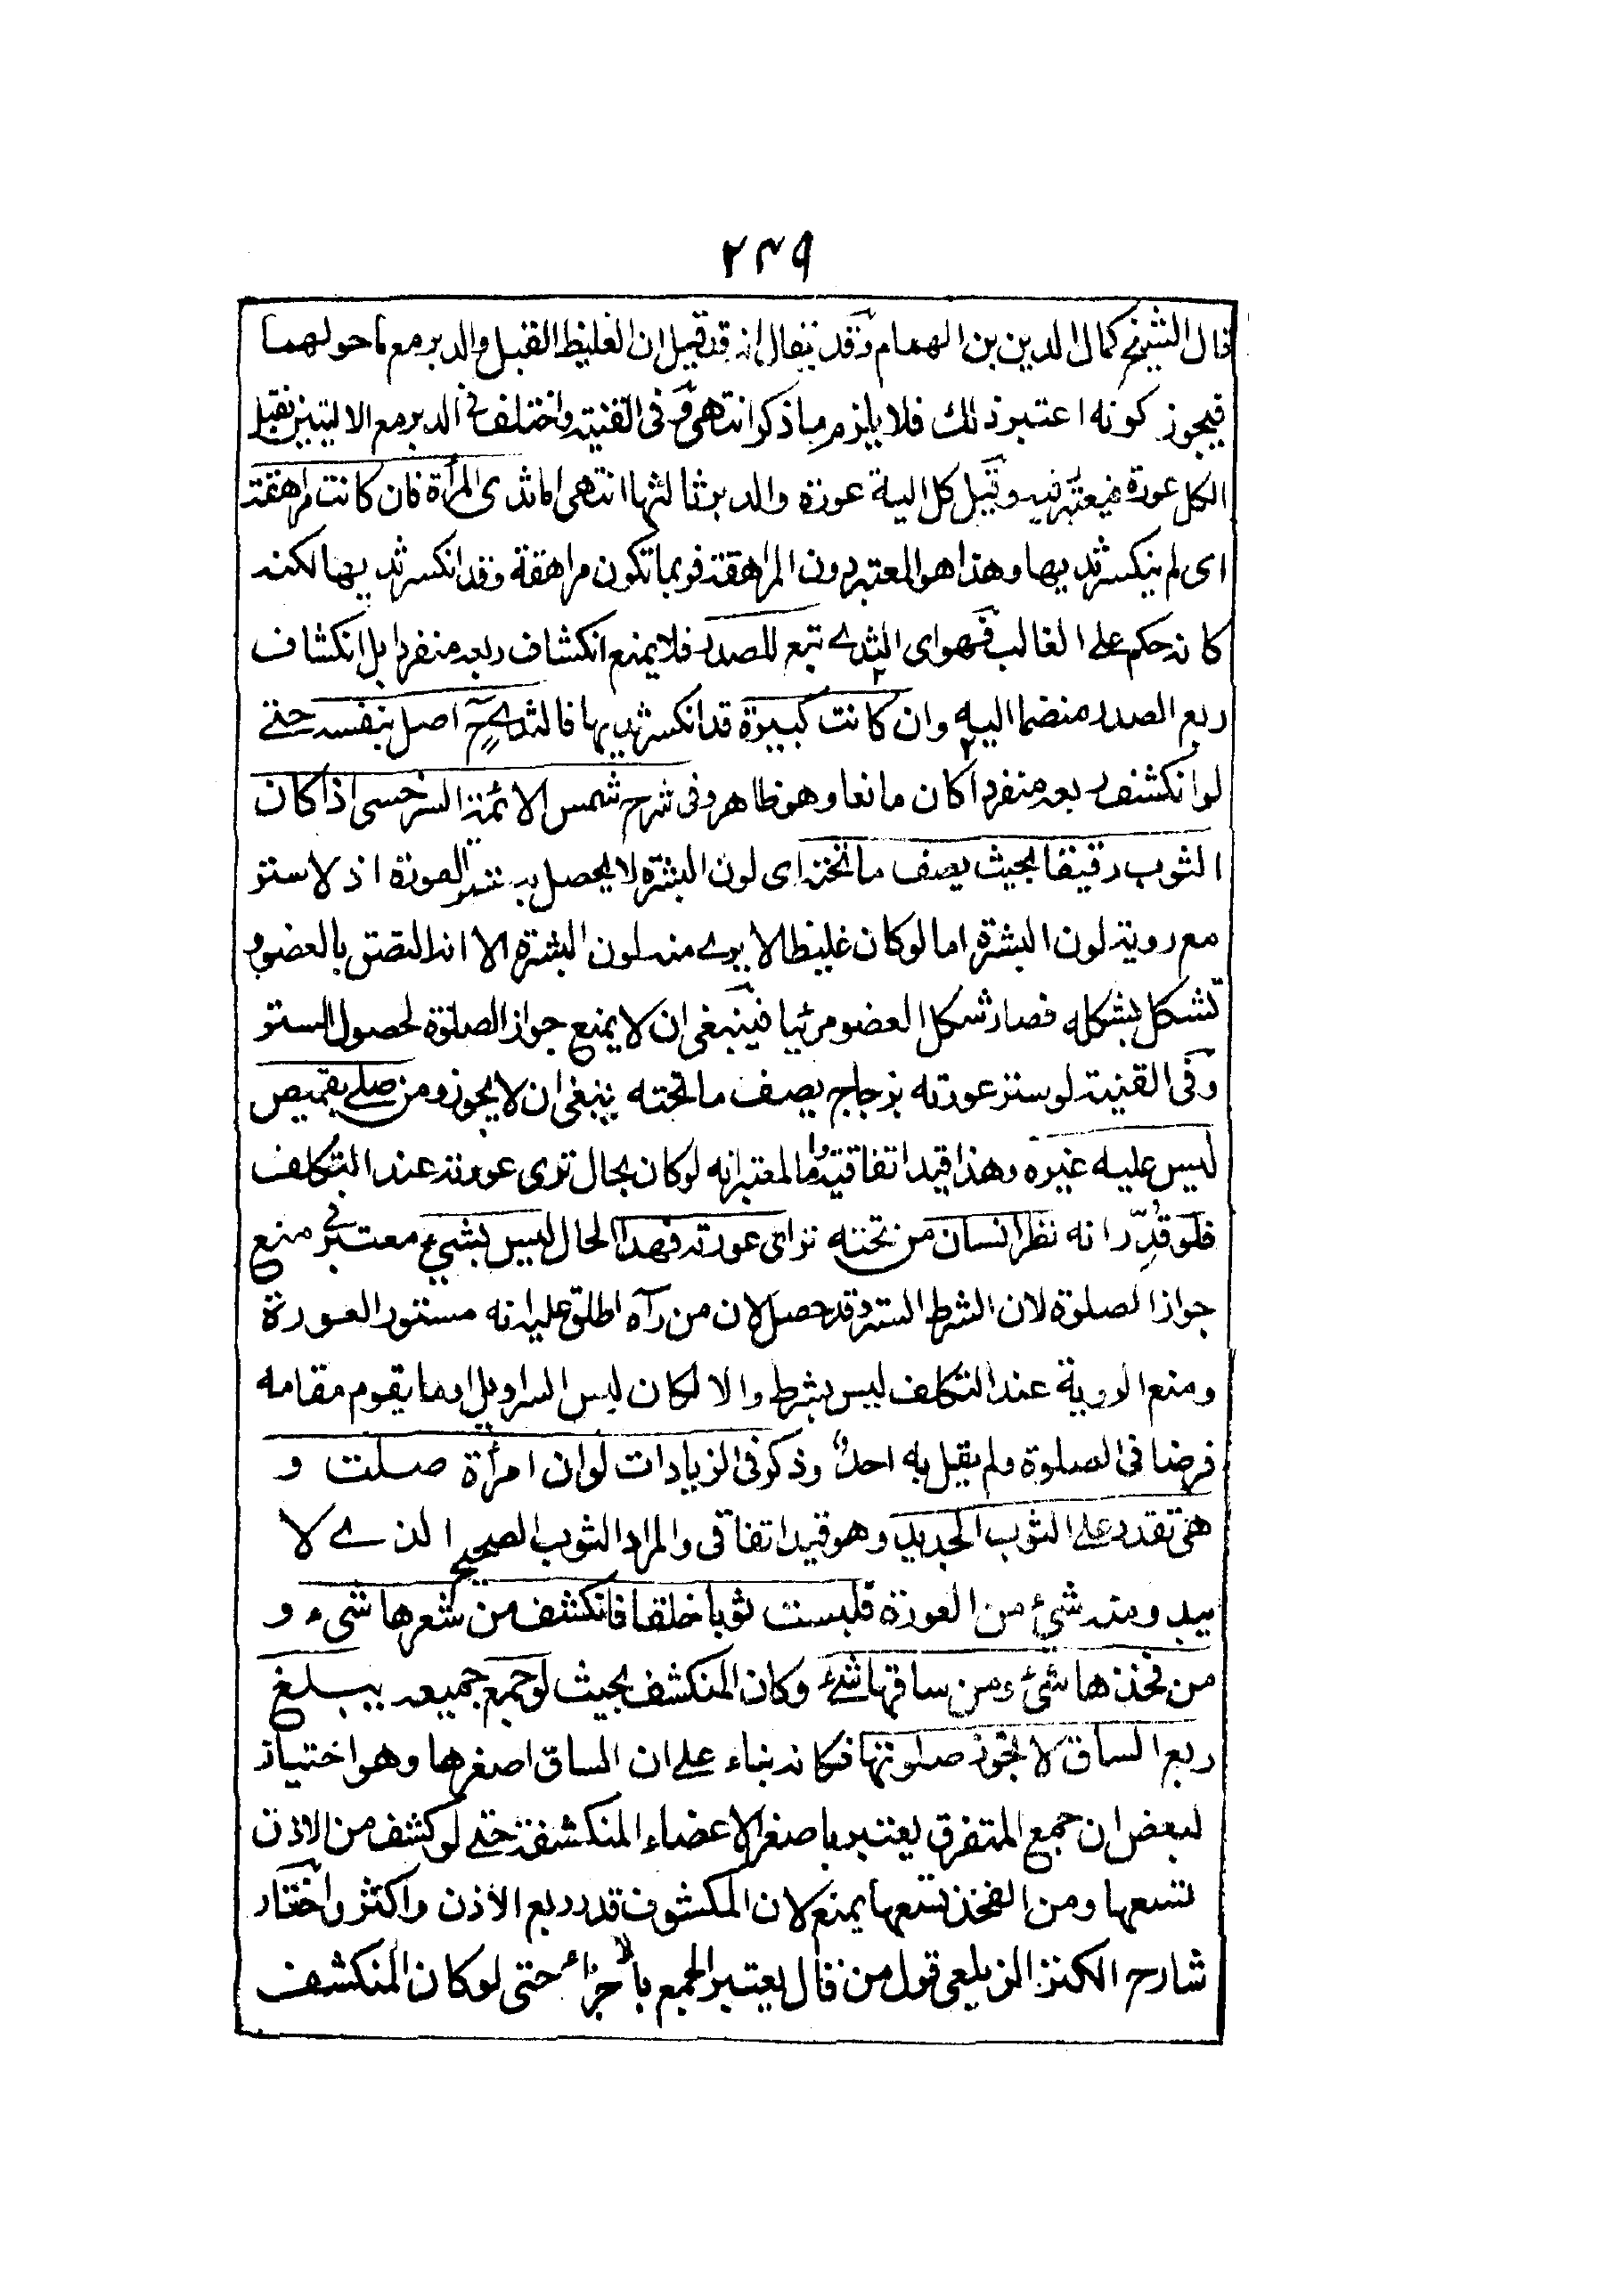 ٢٤٩
قال الشيخ كمال الدين بن الهمام وقد يقال انه قد قيل ان الغليظ القبل والدبر مع ماحولهما
فيجوز كونه اعتبر ذلك فلا يلزم ماذكر انتهى وفى القنية واختلف فى الدبر مع الاليتين فقيل
الكل عورة فيعتبر فيه وقيل كل الية عورة والدبر ثالثها انتهى اما ثدى المرأة فان كانت مراهقة
اى لم ينكسر ثديها وهذا هو المعتبر دون المراهقة فربما تكون مراهقة وقد انكسر ثديها لكنه
كانه حكم على الغالب فهو اى الثدى تبع للصدر فلا يمنع انكشاف ربعه منفردا بل انكشاف
ربع الصدر منضما اليه وان كانت كبيرة قد انكسر ثديها فالثدى ح اصل بنفسه حتى
لو انكشف ربعه منفردا كان مانعا وهو ظاهر وفى شرح شمس الائمة السرخسى اذا كان
الثوب رقيقا بحيث يصف ماتحته اى لون البشرة لا يحصل به ستر العورة اذ لا ستر
مع روية لون البشرة اما لو كان غليظا لا يرى منه لون البشرة الا انه التصق بالعضو و
تشكل بشكله فصار شكل العضو مرئيا فينبغى ان لا يمنع جواز الصلوة لحصول الستر
وفى القنية لو ستر عورته بزجاج يصف ماتحته ينبغى ان لا يجوز ومن صلى بقميص
ليس عليه غيره وهذا قيد اتفاقى وانما المعتبر انه لو كان بحال ترى عورته عند التكلف
فلو قدّر انه نظر انسان من تحته تراى عورته فهذا الحال ليس بشئ معتبر فى منع
جواز الصلوة لان الشرط الستر وقد حصل لان من رآه اطلق عليه انه مستور العورة
ومنع الروية عند التكلف ليس بشرط والا لكان لبس السراويل او ما يقوم مقامه
فرضا فى الصلوة ولم يقل به احد وذكر فى الزيادات لو ان امرأة صلت و
هى تقدر على الثوب الجديد وهو قيد اتفاقى والمراد الثوب الصحيح الذى لا
يبدو منه شئ من العورة فلبست ثوبا خلقا فانكشف من شعرها شىء و
من فخذها شئ ومن ساقها شئ وكان المنكشف بحيث لو جمع جميعه يبلغ
ربع الساق لا تجوز صلوتها فكانه بناء على ان الساق اصغرها وهو اختيار
لبعض ان جمع المتفرق يعتبر باصغر الاعضاء المنكشفة حتى لو كشف من الاذن
تسعها ومن الفخذ تسعها يمنع لان المكشوف قدر ربع الاذن واكثر واختار
شارح الكنز الزيلعى قول من قال يعتبر الجمع بالاجزاء حتى لو كان المنكشف